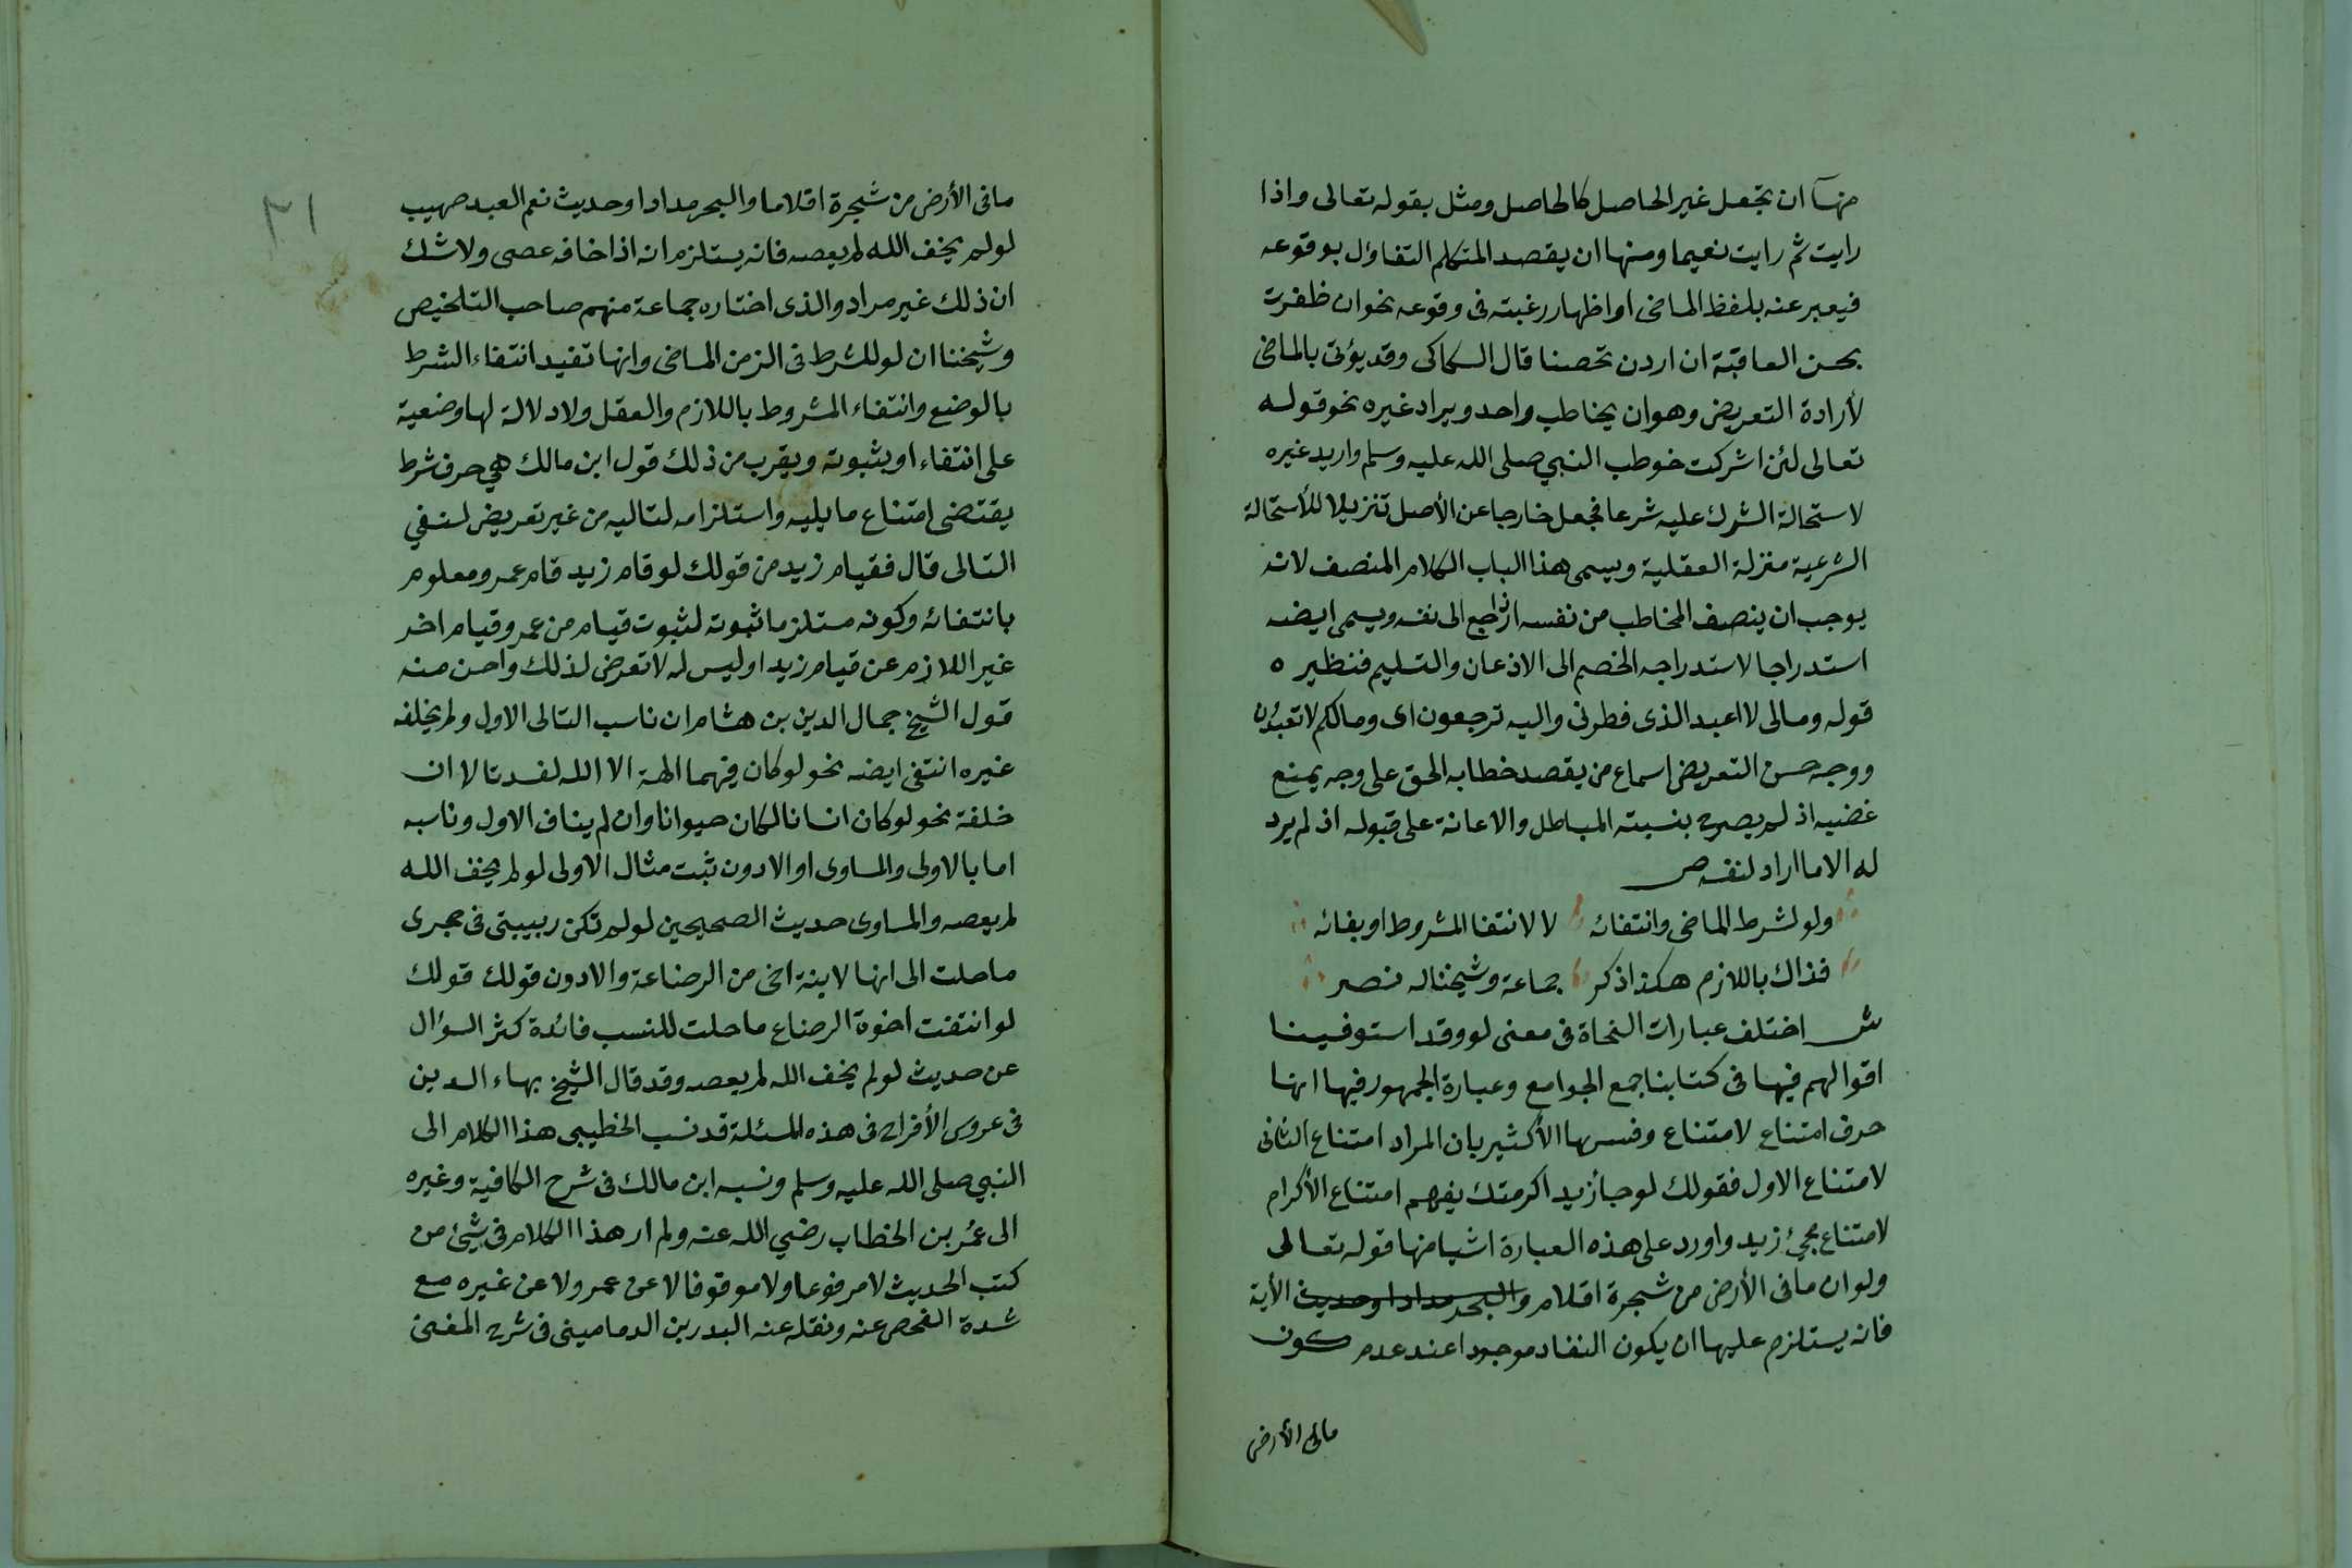 منها ان تجعل غير الحاصل كالحاصل ومثل بقوله تعالى واذا
رايت ثم رايت نعيما ومنها ان يقصد المتكلم التفاؤل بوقوعه
فيعبر عنه بلفظ الماضى او اظهار رغبته فى وقوعه نحو ان ظفرت
بحسن العاقبة ان اردن تحصنا قال السكاكى وقد يؤتى بالماضى
لأرادة التعريض وهو ان يخاطب واحد ويراد غيره نحو قوله
تعالى لئن اشركت خوطب النبي صلى الله عليه وسلم واريد غيره
لاستحالة الشرك عليه شرعا فجعل خارجا عن الأصل تنزيلا للأستحالة
الشرعية منزلة العقلية ويسمى هذا الباب الكلام المنصف لانه
يوجب ان ينصف المخاطب من نفسه اذا رجع الى نفسه ويسمى ايضه
استدراجا لاستدراجه الخصم الى الاذعان والتسليم فنظيره
قوله ومالى لا اعبد الذى فطرنى واليه ترجعون اى ومالكم لا تعبدون
ووجه حسن التعريض اسماع من يقصد خطابه الحق على وجه يمنع
غضبه اذ لم يصرح بنسبته المباطل والاعانة على قبوله اذ لم يرد
له الا ما اراد لنفسه ص
ولو لشرط الماضى وانتفائه لا لانتفا المشروط او بقائه
فذاك باللازم هكذا ذكر جماعة وشيخنا له نصر
ش اختلف عبارات النحاة فى معنى لو وقد استوفينا
اقوالهم فيها فى كتابنا جمع الجوامع وعبارة الجمهور فيها انها
حرف امتناع لامتناع وفسرها الأكثير بان المراد امتناع الثانى
لامتناع الاول فقولك لو جا زيد اكرمتك يفهم امتناع الأكرام
لامتناع مجئ زيد واورد على هذه العبارة اشيا منها قوله تعالى
ولو ان مافى الأرض من شجرة اقلام والبحر مدادا وحديث الأية
فانه يستلزم عليها ان يكون النفاد موجودا عند عدم كون
مافى الأرض
مافى الأرض من شجرة اقلاما والبحر مدادا وحديث نعم العبد صهيب
لو لم يخف الله لم يعصه فانه يستلزم انه اذا خافه عصى ولا شك
ان ذلك غير مراد والذى اختاره جماعة منهم صاحب التلخيص
وشيخنا ان لو للشرط فى الزمن الماضى وانها تفيد انتفاء الشرط
بالوضع وانتفاء المشروط باللازم والعقل ولا دلالة لها وضعية
على انتفاء او بثبوته ويقرب من ذلك قول ابن مالك هي حرف شرط
يقتضى امتناع ما يليه واستلزامه لتاليه من غير تعريض لنفي
التالى قال فقيام زيد من قولك لو قام زيد قام عمرو معلوم
بانتفائه وكونه مستلزما ثبوته لثبوت قيام من عمرو قيام اخر
غير اللازم عن قيام زيد او ليس له لا تعرض لذلك واحسن منه
قول الشيخ جمال الدين بن هشام ان ناسب التالى الاول ولم يخلفه
غيره انتفى ايضه نحو لو كان فيهما الهة الا الله لفسدتا لا ان
خلفة نحو لو كان انسانا لكان حيوانا وان لم يناف الاول وناسبه
اما بالاولى والمساوى او الادون ثبت مثال الاولى لو لم يخف الله
لم يعصه والمساوى حديث الصحيحين لو لم تكن ربيبتى فى حجرى
ما حلت الى انها لابنة اخى من الرضاعة والادون قولك قولك
لو انتفت اخوة الرضاع ما حلت للنسب فائدة كثر السؤال
عن حديث لو لم يخف الله لم يعصه وقد قال الشيخ بهاء الدين
فى عروس الأفراح فى هذه المسئلة قد نسب الخطيبى هذا الكلام الى
النبي صلى الله عليه وسلم ونسبه ابن مالك فى شرح الكافية وغيره
الى عمر بن الخطاب رضي الله عنه ولم ار هذا الكلام فى شيئ من
كتب الحديث لا مرفوعا ولا موقوفا لا عن عمر ولا عن غيره مع
شدة الفحص عنه ونقله عنه البدر بن الدمامينى فى شرح المغنى